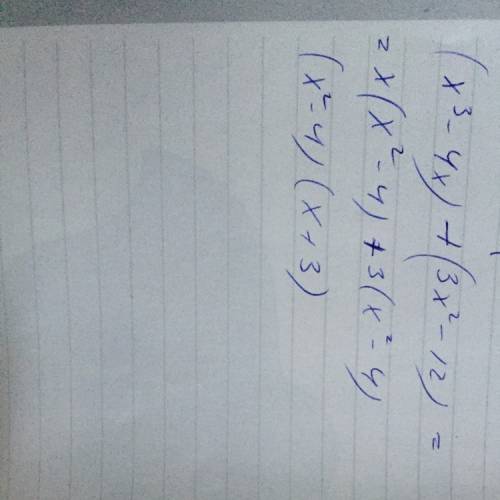 (x³-4x)+(3x²-12)=
=x(x²-4)+3(x²-4)
(x²-4)(x+3)